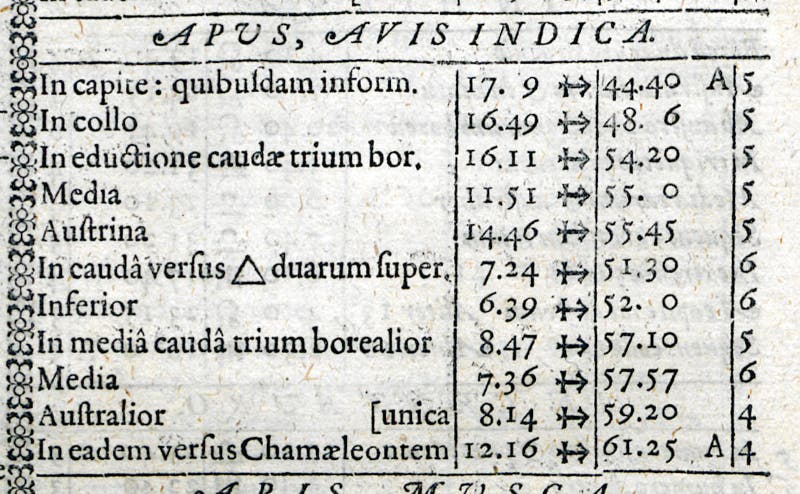 APUS, AVIS INDICA.
In capite: quibuſdam inform. 17. 9 ♐ 44.40 A 5
In collo 16.49 ♐ 48. 6 5
In eductione caudæ trium bor. 16.11 ♐ 54.20 5
Media 11.51 ♐ 55. 0 5
Auſtrina 14.46 ♐ 55.45 5
In caudâ verſus △ duarum ſuper. 7.24 ♐ 51.30 6
Inferior 6.39 ♐ 52. 0 6
In mediâ caudâ trium borealior 8.47 ♐ 57.10 5
Media 7.36 ♐ 57.57 6
Auſtralior [unica 8.14 ♐ 59.20 4
In eadem verſus Chamæleontem 12.16 ♐ 61.25 A 4
APIS, MUSCA